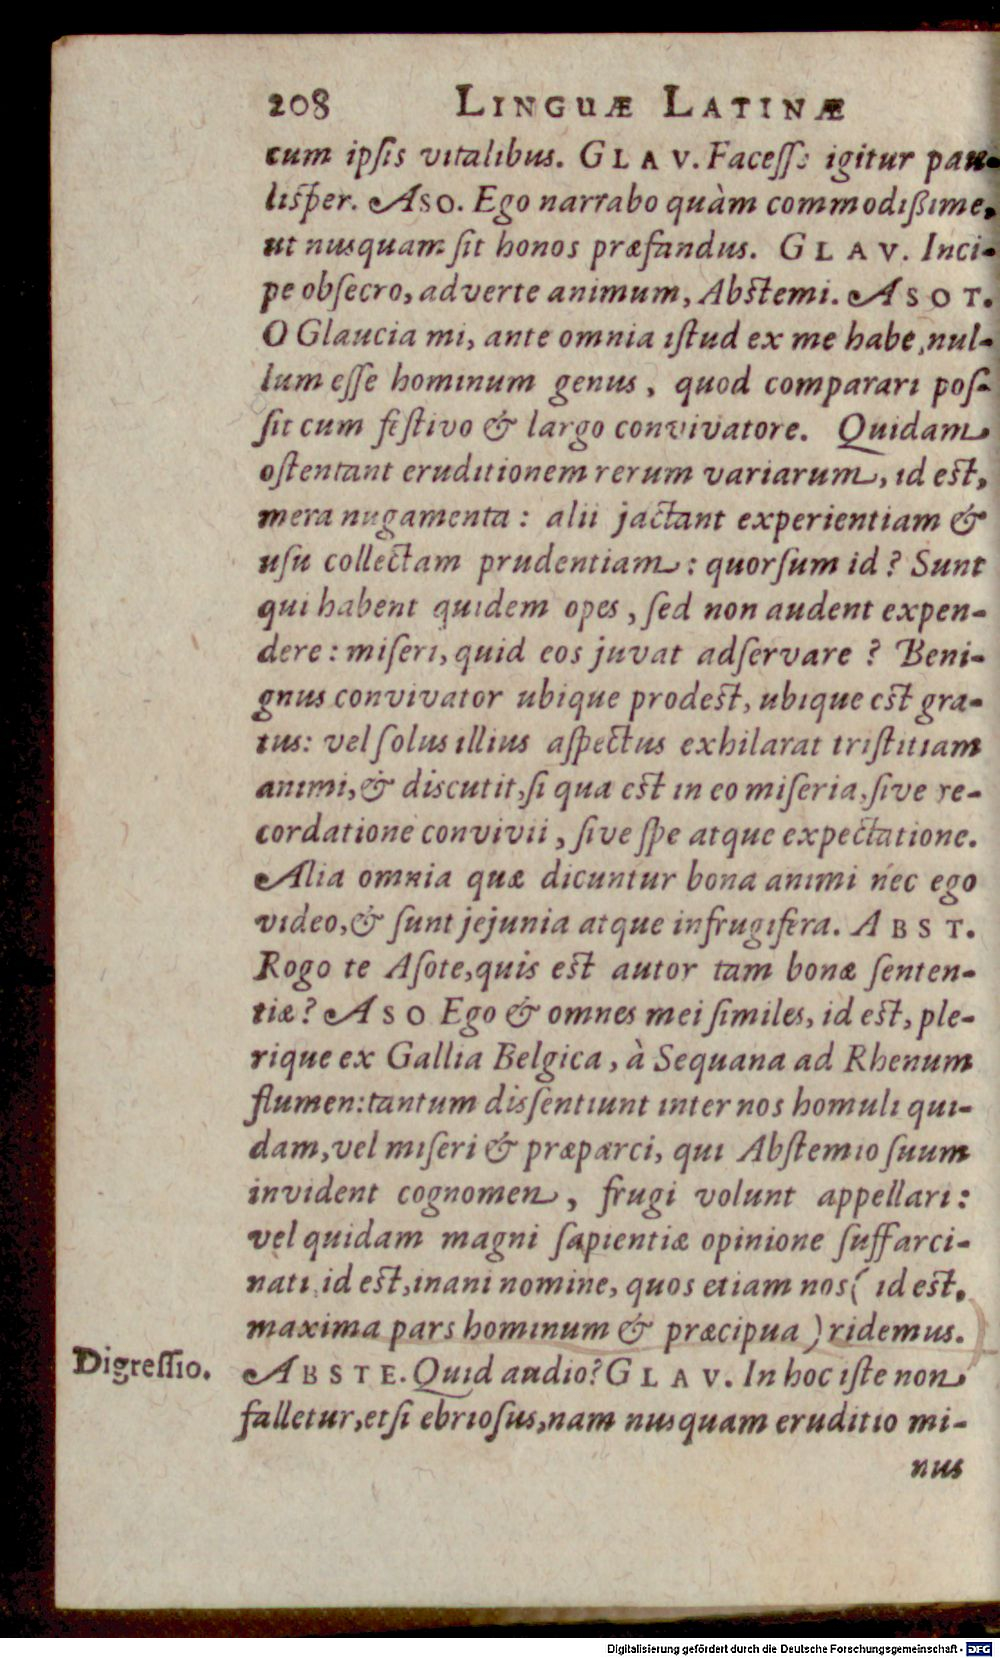 208 LINGUÆ LATINÆ
cum ipſis vitalibus. GLAV. Faceſſe igitur pau-
liſper. ASO. Ego narrabo quàm commodißime,
ut nusquam ſit honos præfandus. GLAV. Inci-
pe obſecro, adverte animum, Abſtemi. ASOT.
O Glaucia mi, ante omnia iſtud ex me habe, nul-
lum eſſe hominum genus, quod comparari poſ-
ſit cum feſtivo & largo convivatore. Quidam
oſtentant eruditionem rerum variarum, id eſt,
mera nugamenta: alii jactant experientiam &
uſu collectam prudentiam: quorſum id? Sunt
qui habent quidem opes, ſed non audent expen-
dere: miſeri, quid eos juvat adſervare? Beni-
gnus convivator ubique prodeſt, ubique eſt gra-
tus: vel ſolus illius aſpectus exhilarat triſtitiam
animi, & discutit, ſi qua eſt in eo miſeria, ſive re-
cordatione convivii, ſive ſpe atque expectatione.
Alia omnia quæ dicuntur bona animi nec ego
video, & ſunt jejunia atque infrugifera. ABST.
Rogo te Aſote, quis eſt autor tam bonæ ſenten-
tiæ? ASO Ego & omnes mei ſimiles, id eſt, ple-
rique ex Gallia Belgica, à Sequana ad Rhenum
flumen: tantum disſentiunt inter nos homuli qui-
dam, vel miſeri & præparci, qui Abſtemio ſuum
invident cognomen, frugi volunt appellari:
vel quidam magni ſapientiæ opinione ſuffarci-
nati, id eſt, inani nomine, quos etiam nos ( id eſt,
maxima pars hominum & præcipua ) ridemus.
Digreſſio. ABSTE. Quid audio? GLAV. In hoc iſte non
falletur, etſi ebrioſus, nam nusquam eruditio mi-
nus
Digitalisierung gefördert durch die Deutsche Forschungsgemeinschaft - DFG